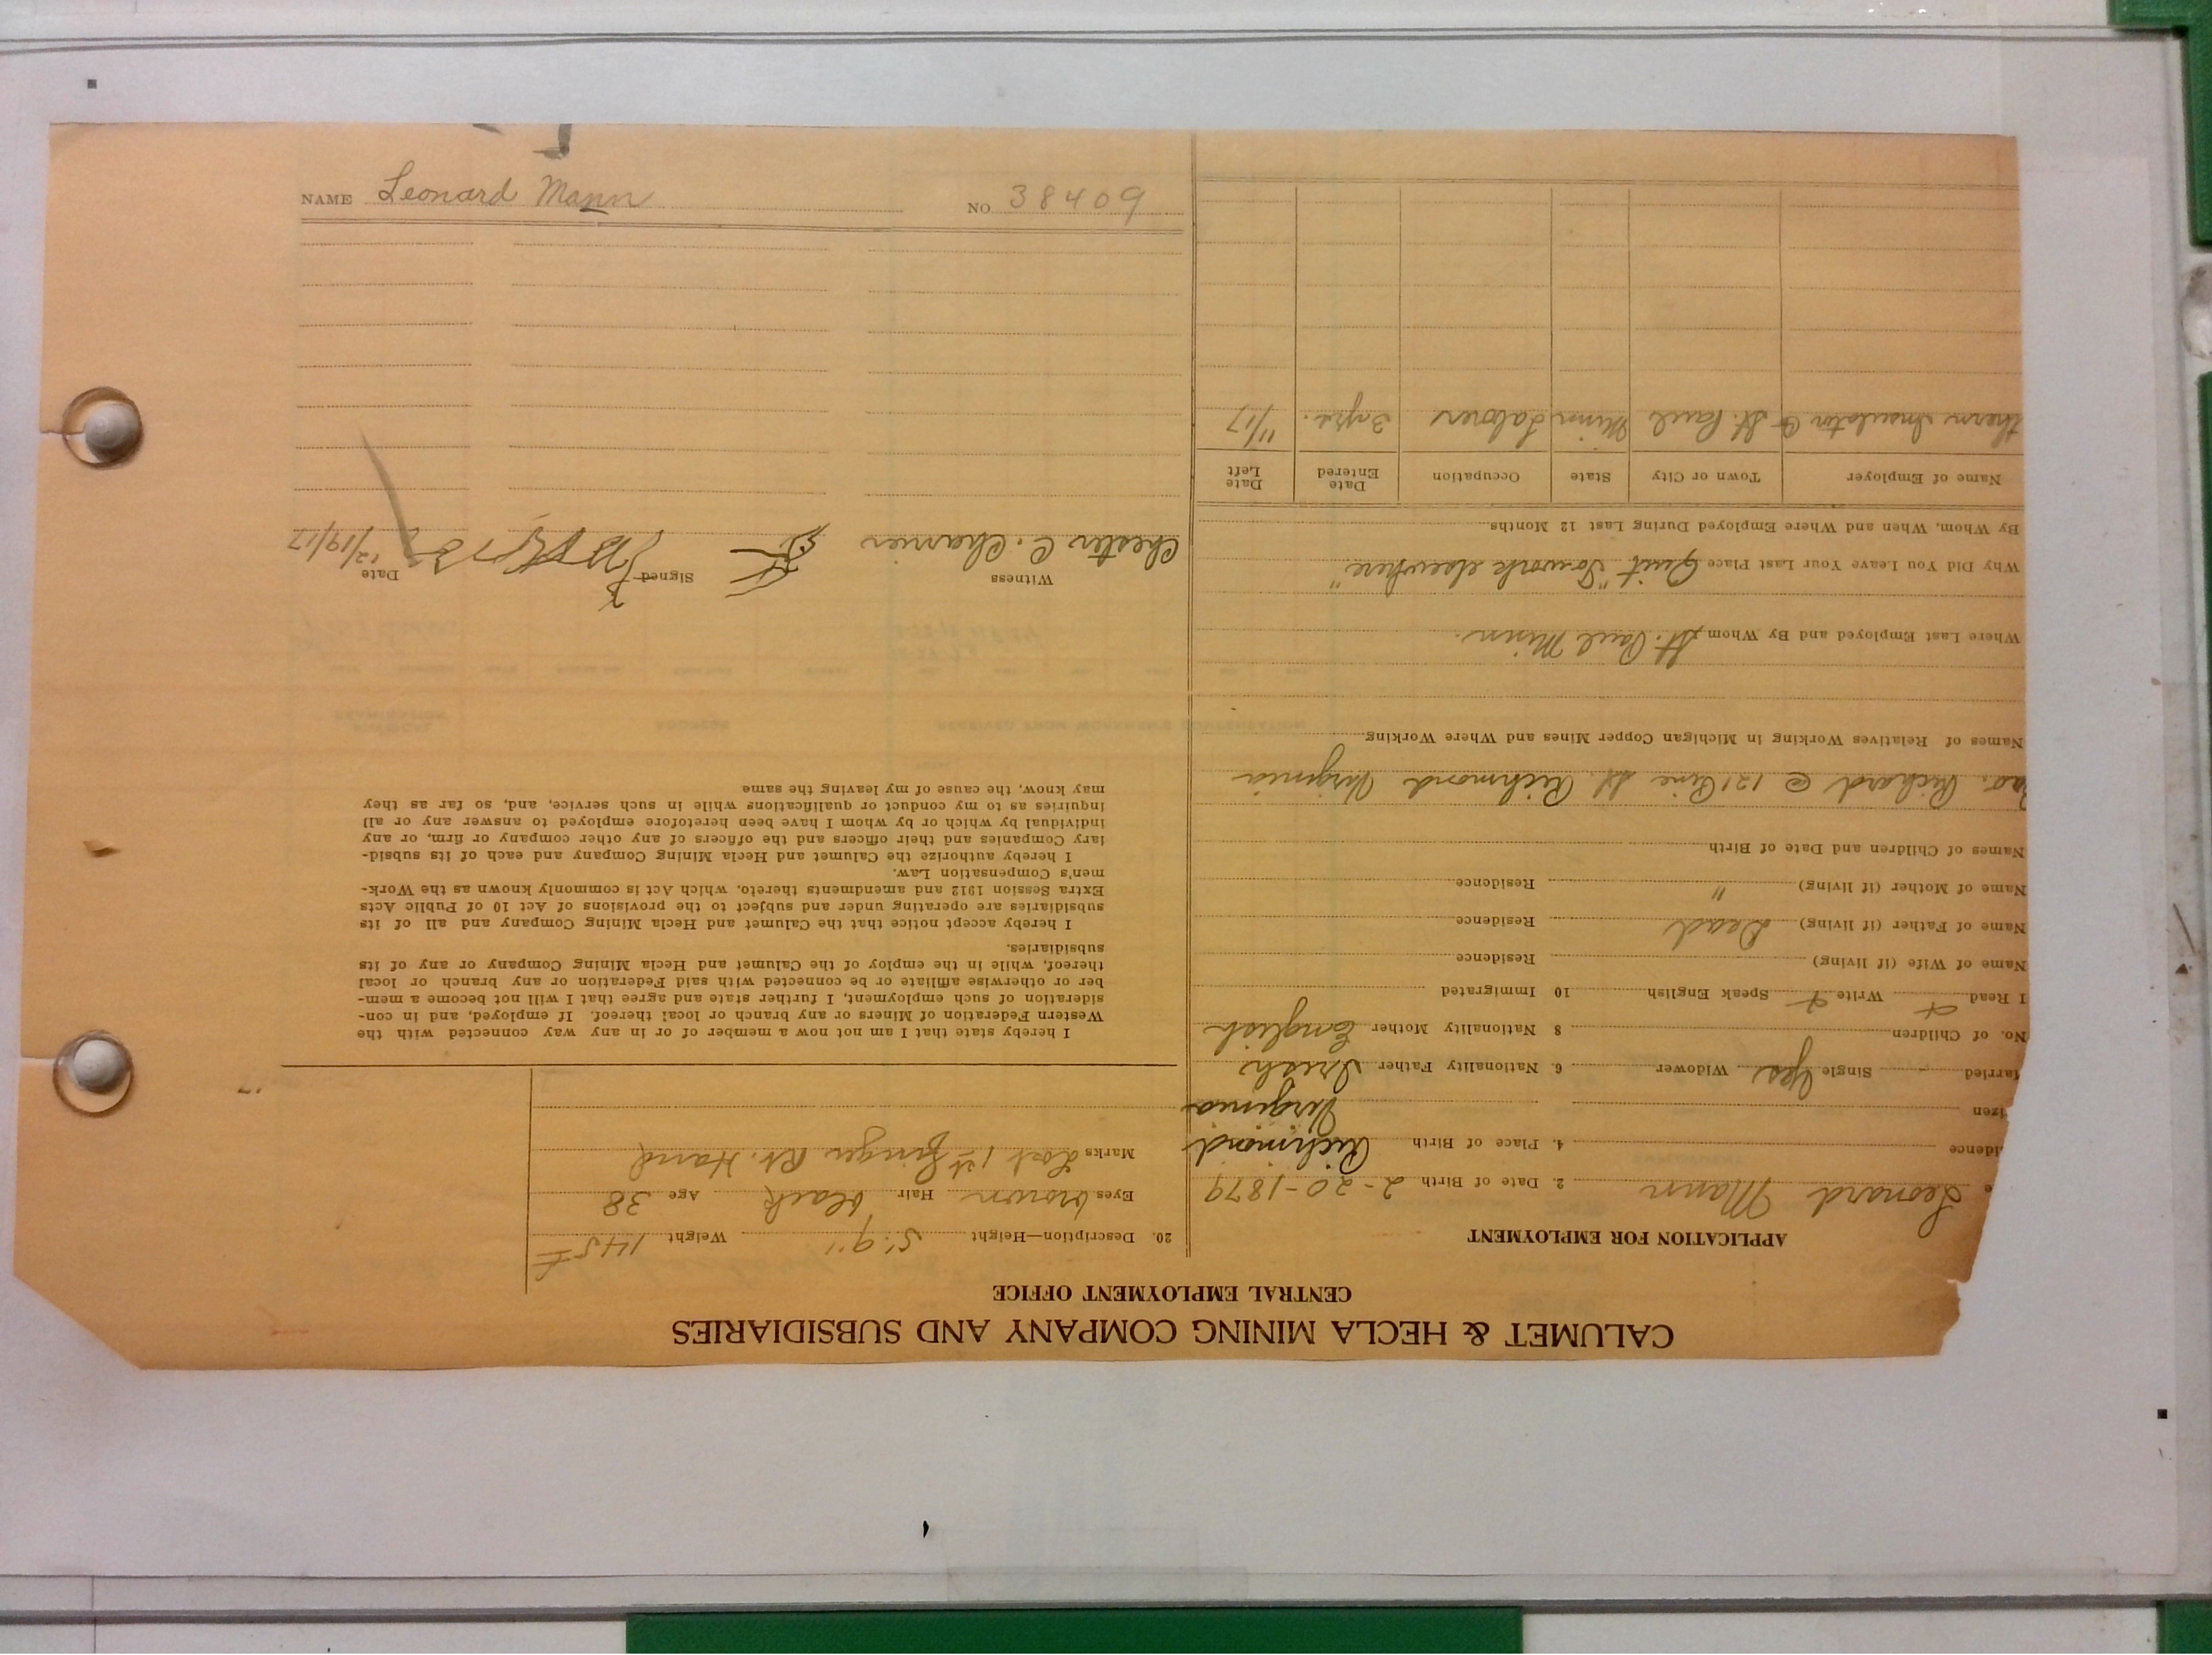 CALUMET & HECLA MINING COMPANY AND SUBSIDIARIES
CENTRAL EMPLOYMENT OFFICE
APPLICATION FOR EMPLOYMENT
e Leonard Mann 2. Date of Birth 2-20-1879
idence 4. Place of Birth Richmond
izen Virginia
arried - Single Yes Widower 6. Nationality Father Iresh
No. of Children 8 Nationality Mother English
I Read Write Speak English 10 Immigrated
Name of Wife (if living) Residence
Name of Father (if living) Dead Residence
Name of Mother (if living) " Residence
Names of Children and Date of Birth
Richard @ 121 Pine St. Richmond Virginia
Names of Relatives Working in Michigan Copper Mines and Where Working
Where Last Employed and By Whom St. Paul Minn.
Why Did You Leave Your Last Place Quit "To work elsewhere"
By Whom, When and Where Employed During Last 12 Months
Name of Employer Town or City State Occupation Date Entered Date Left
therm Insulator Co St. Paul Minn Laborer 3 11/17
20. Description—Height 5' 9" Weight 145
Eyes brown Hair black Age 38
Marks Lost 1st finger Rt. Hand
I hereby state that I am not now a member of or in any way connected with the
Western Federation of Miners or any branch or local thereof. If employed, and in con-
sideration of such employment, I further state and agree that I will not become a mem-
ber or otherwise affiliate or be connected with said Federation or any branch or local
thereof, while in the employ of the Calumet and Hecla Mining Company or any of its
subsidiaries.
I hereby accept notice that the Calumet and Hecla Mining Company and all of its
subsidiaries are operating under and subject to the provisions of Act 10 of Public Acts
Extra Session 1912 and amendments thereto, which Act is commonly known as the Work-
men's Compensation Law.
I hereby authorize the Calumet and Hecla Mining Company and each of its subsid-
iary Companies and their officers and the officers of any other company or firm, or any
individual by which or by whom I have been heretofore employed to answer any or all
inquiries as to my conduct or qualifications while in such service, and, so far as they
may know, the cause of my leaving the same
Witness Signed Date
Chester C. Charrier 12/19/17
NAME Leonard Mann NO. 38409